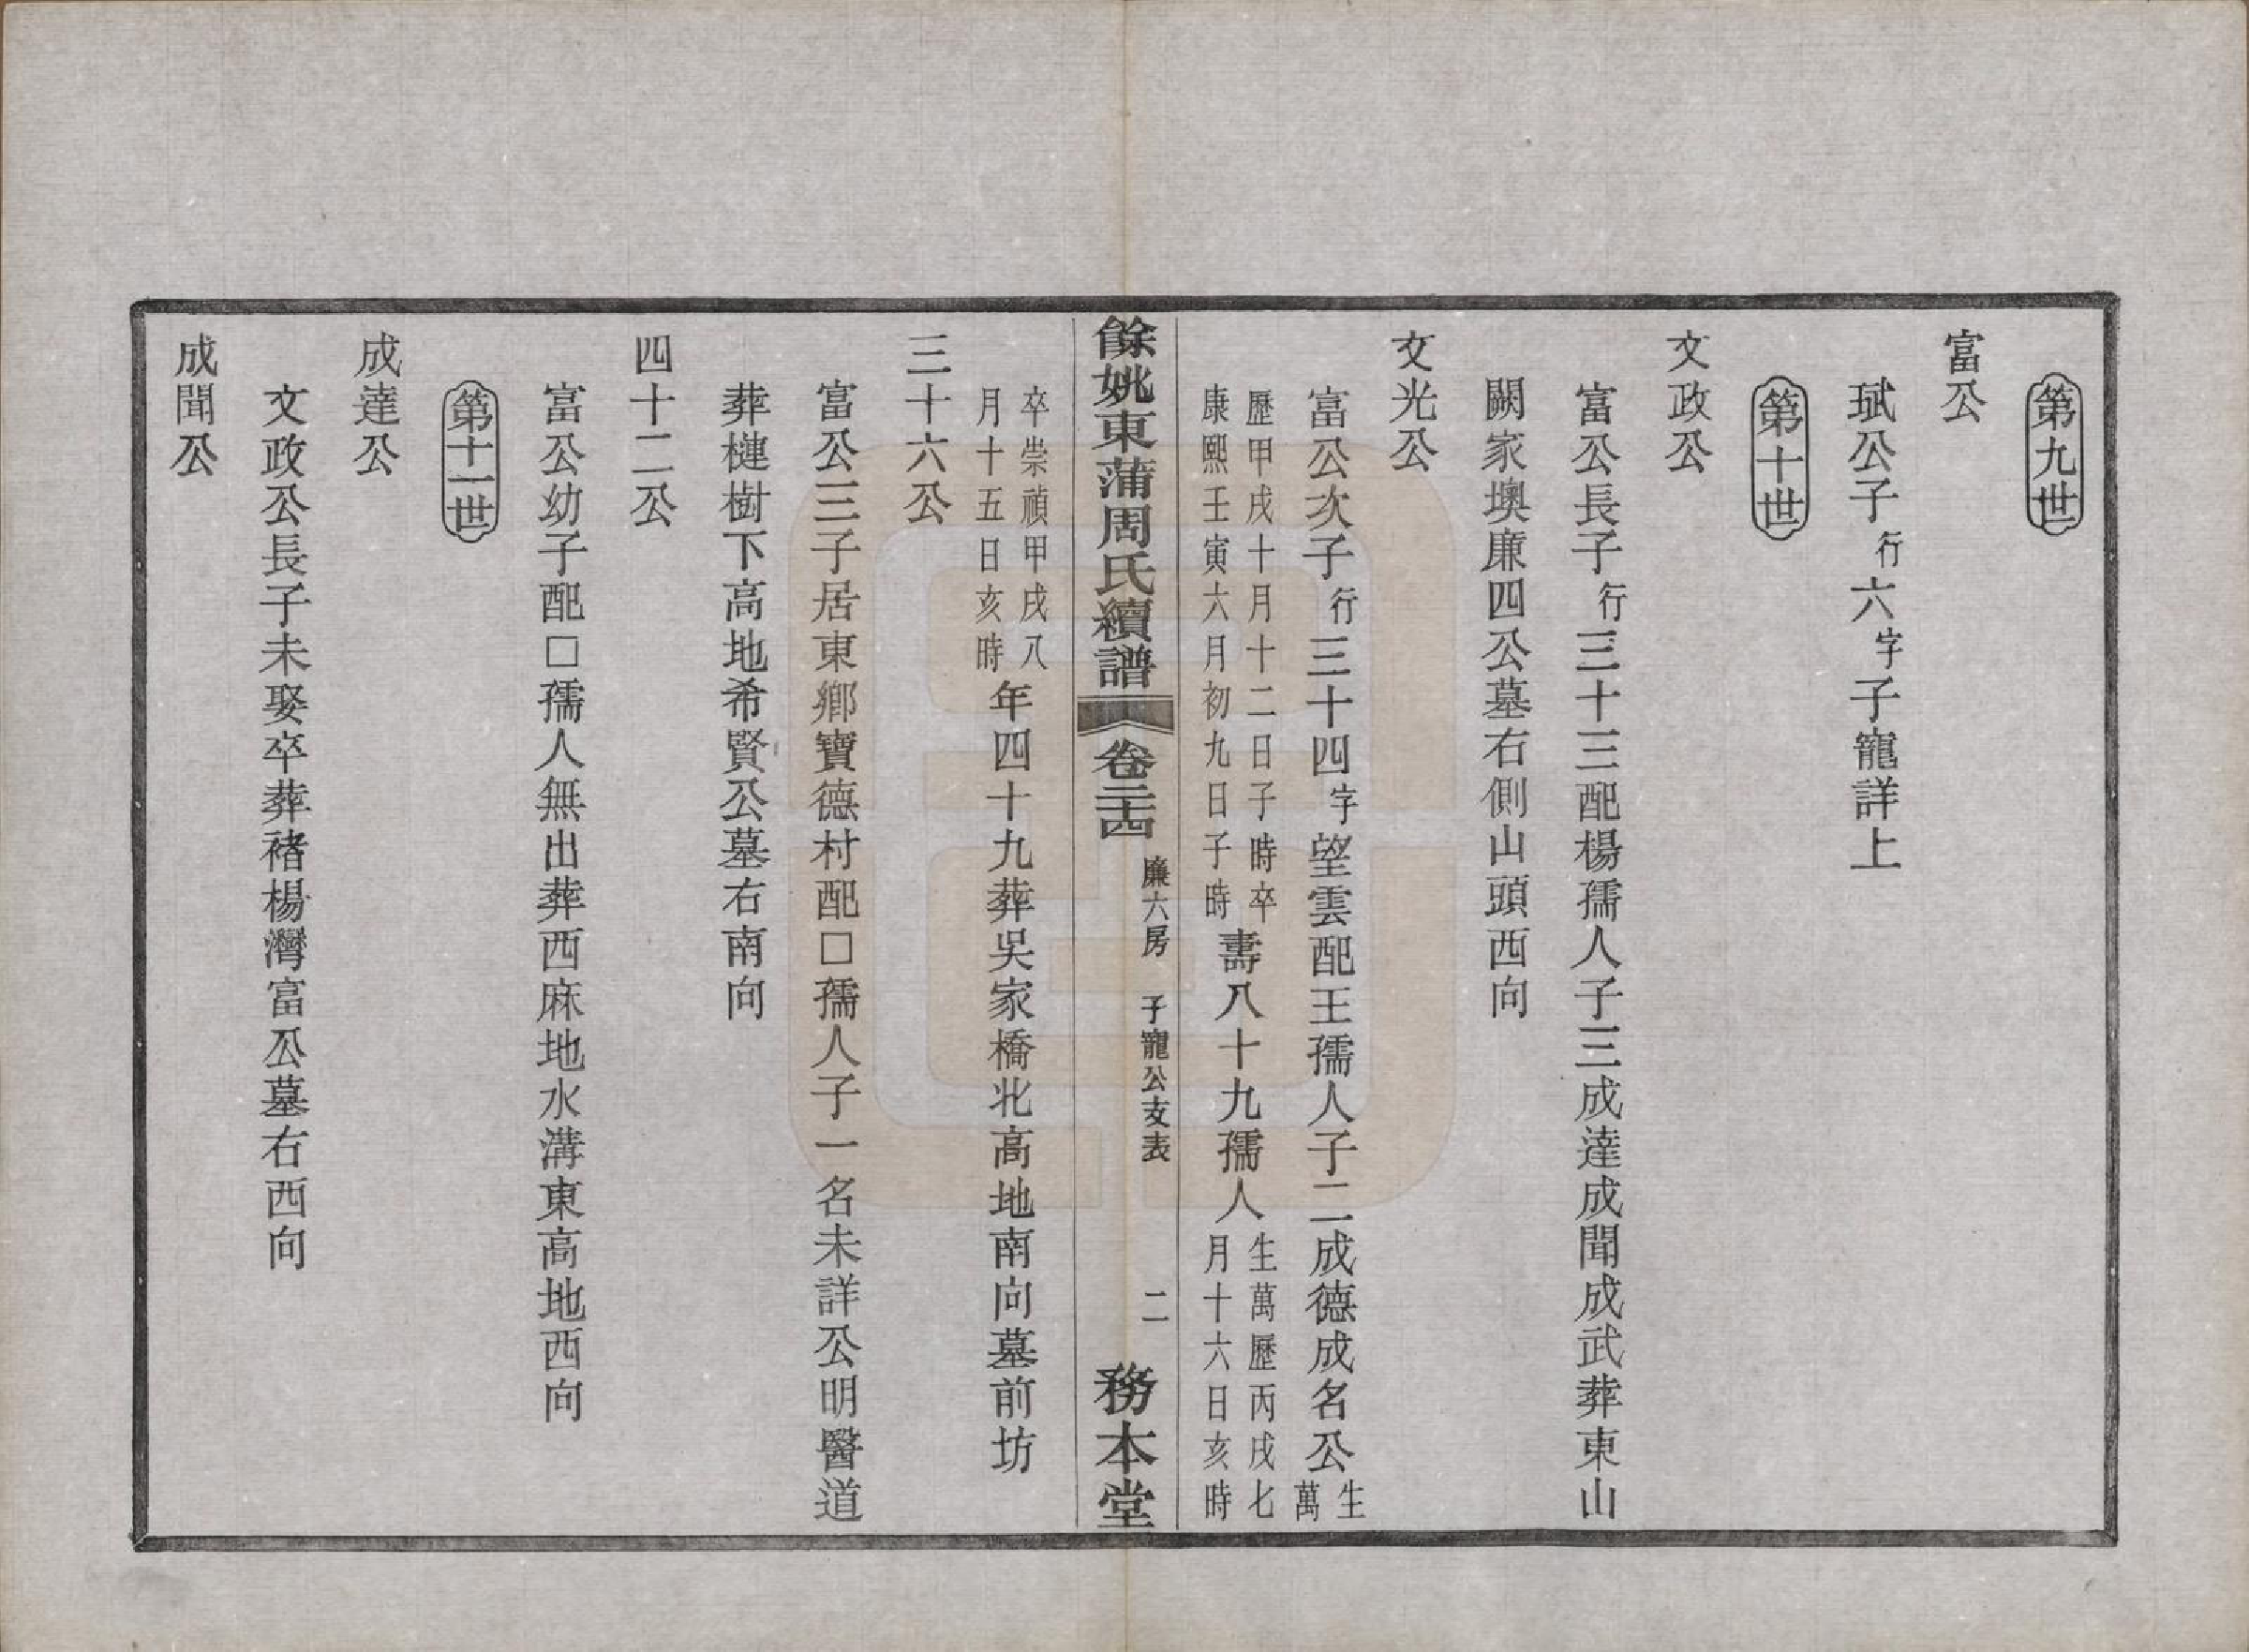 第九世
富公
珷公子行六字子寵詳上
第十世
文政公
富公長子行三十三配楊孺人子三成達成聞成武葬東山
闕家墺廉四公墓右側山頭西向
文光公
富公次子行三十四字望雲配王孺人子二成德成名公生萬
歷甲戌十月十二日子時卒康熙壬寅六月初九日子時壽八十九孺人生萬歷丙戌七月十六日亥時
餘姚東蒲周氏續譜 卷二十四 廉六房 子寵公支表 二 務本堂
卒崇禎甲戌八月十五日亥時年四十九葬吳家橋北高地南向墓前坊
三十六公
富公三子居東鄉寶德村配□孺人子一名未詳公明醫道
葬槤樹下高地希賢公墓右南向
四十二公
富公幼子配□孺人無出葬西麻地水溝東高地西向
第十一世
成達公
文政公長子未娶卒葬褚楊灣富公墓右西向
成聞公